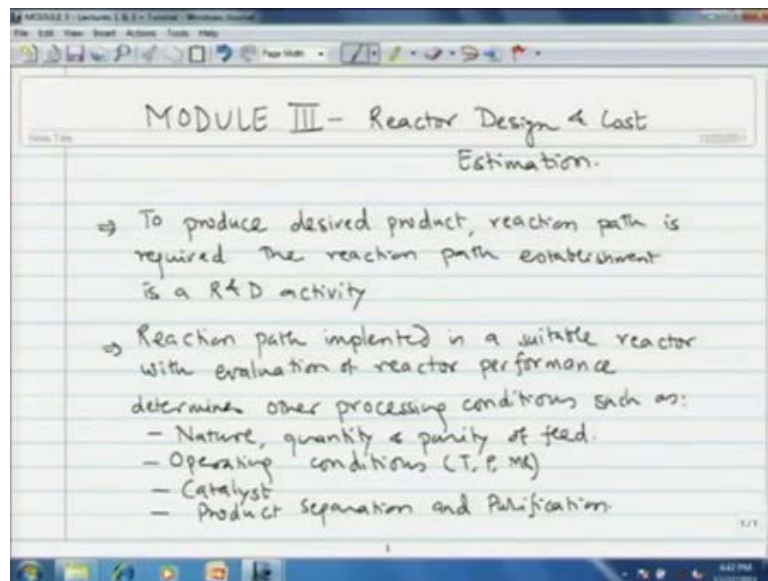 MODULE 3 - Lectures 1 & 2 + Tutorial - Windows Journal
File Edit View Insert Actions Tools Help
Page Width
MODULE III - Reactor Design & Cost
Estimation.
Note Title
⇒ To produce desired product, reaction path is
required The reaction path establishment
is a R&D activity
⇒ Reaction path implented in a suitable reactor
with evaluation of reactor performance
determines other processing conditions such as:
- Nature, quantity & purity of feed.
- Operating conditions (T, P, MR)
- Catalyst
- Product Separation and Purification.
1/1
1
4:42 PM